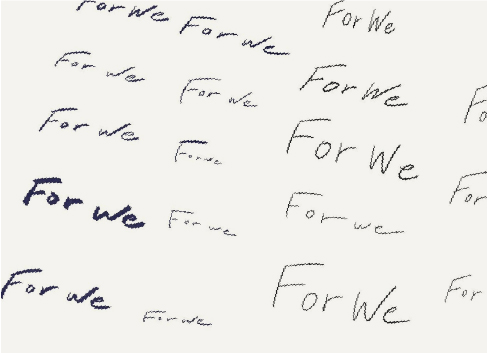 For We
For We
For We
For we
For we
For We
For we
For we
For We
For we
For we
For we
For we
For
For we
For We
For
For we